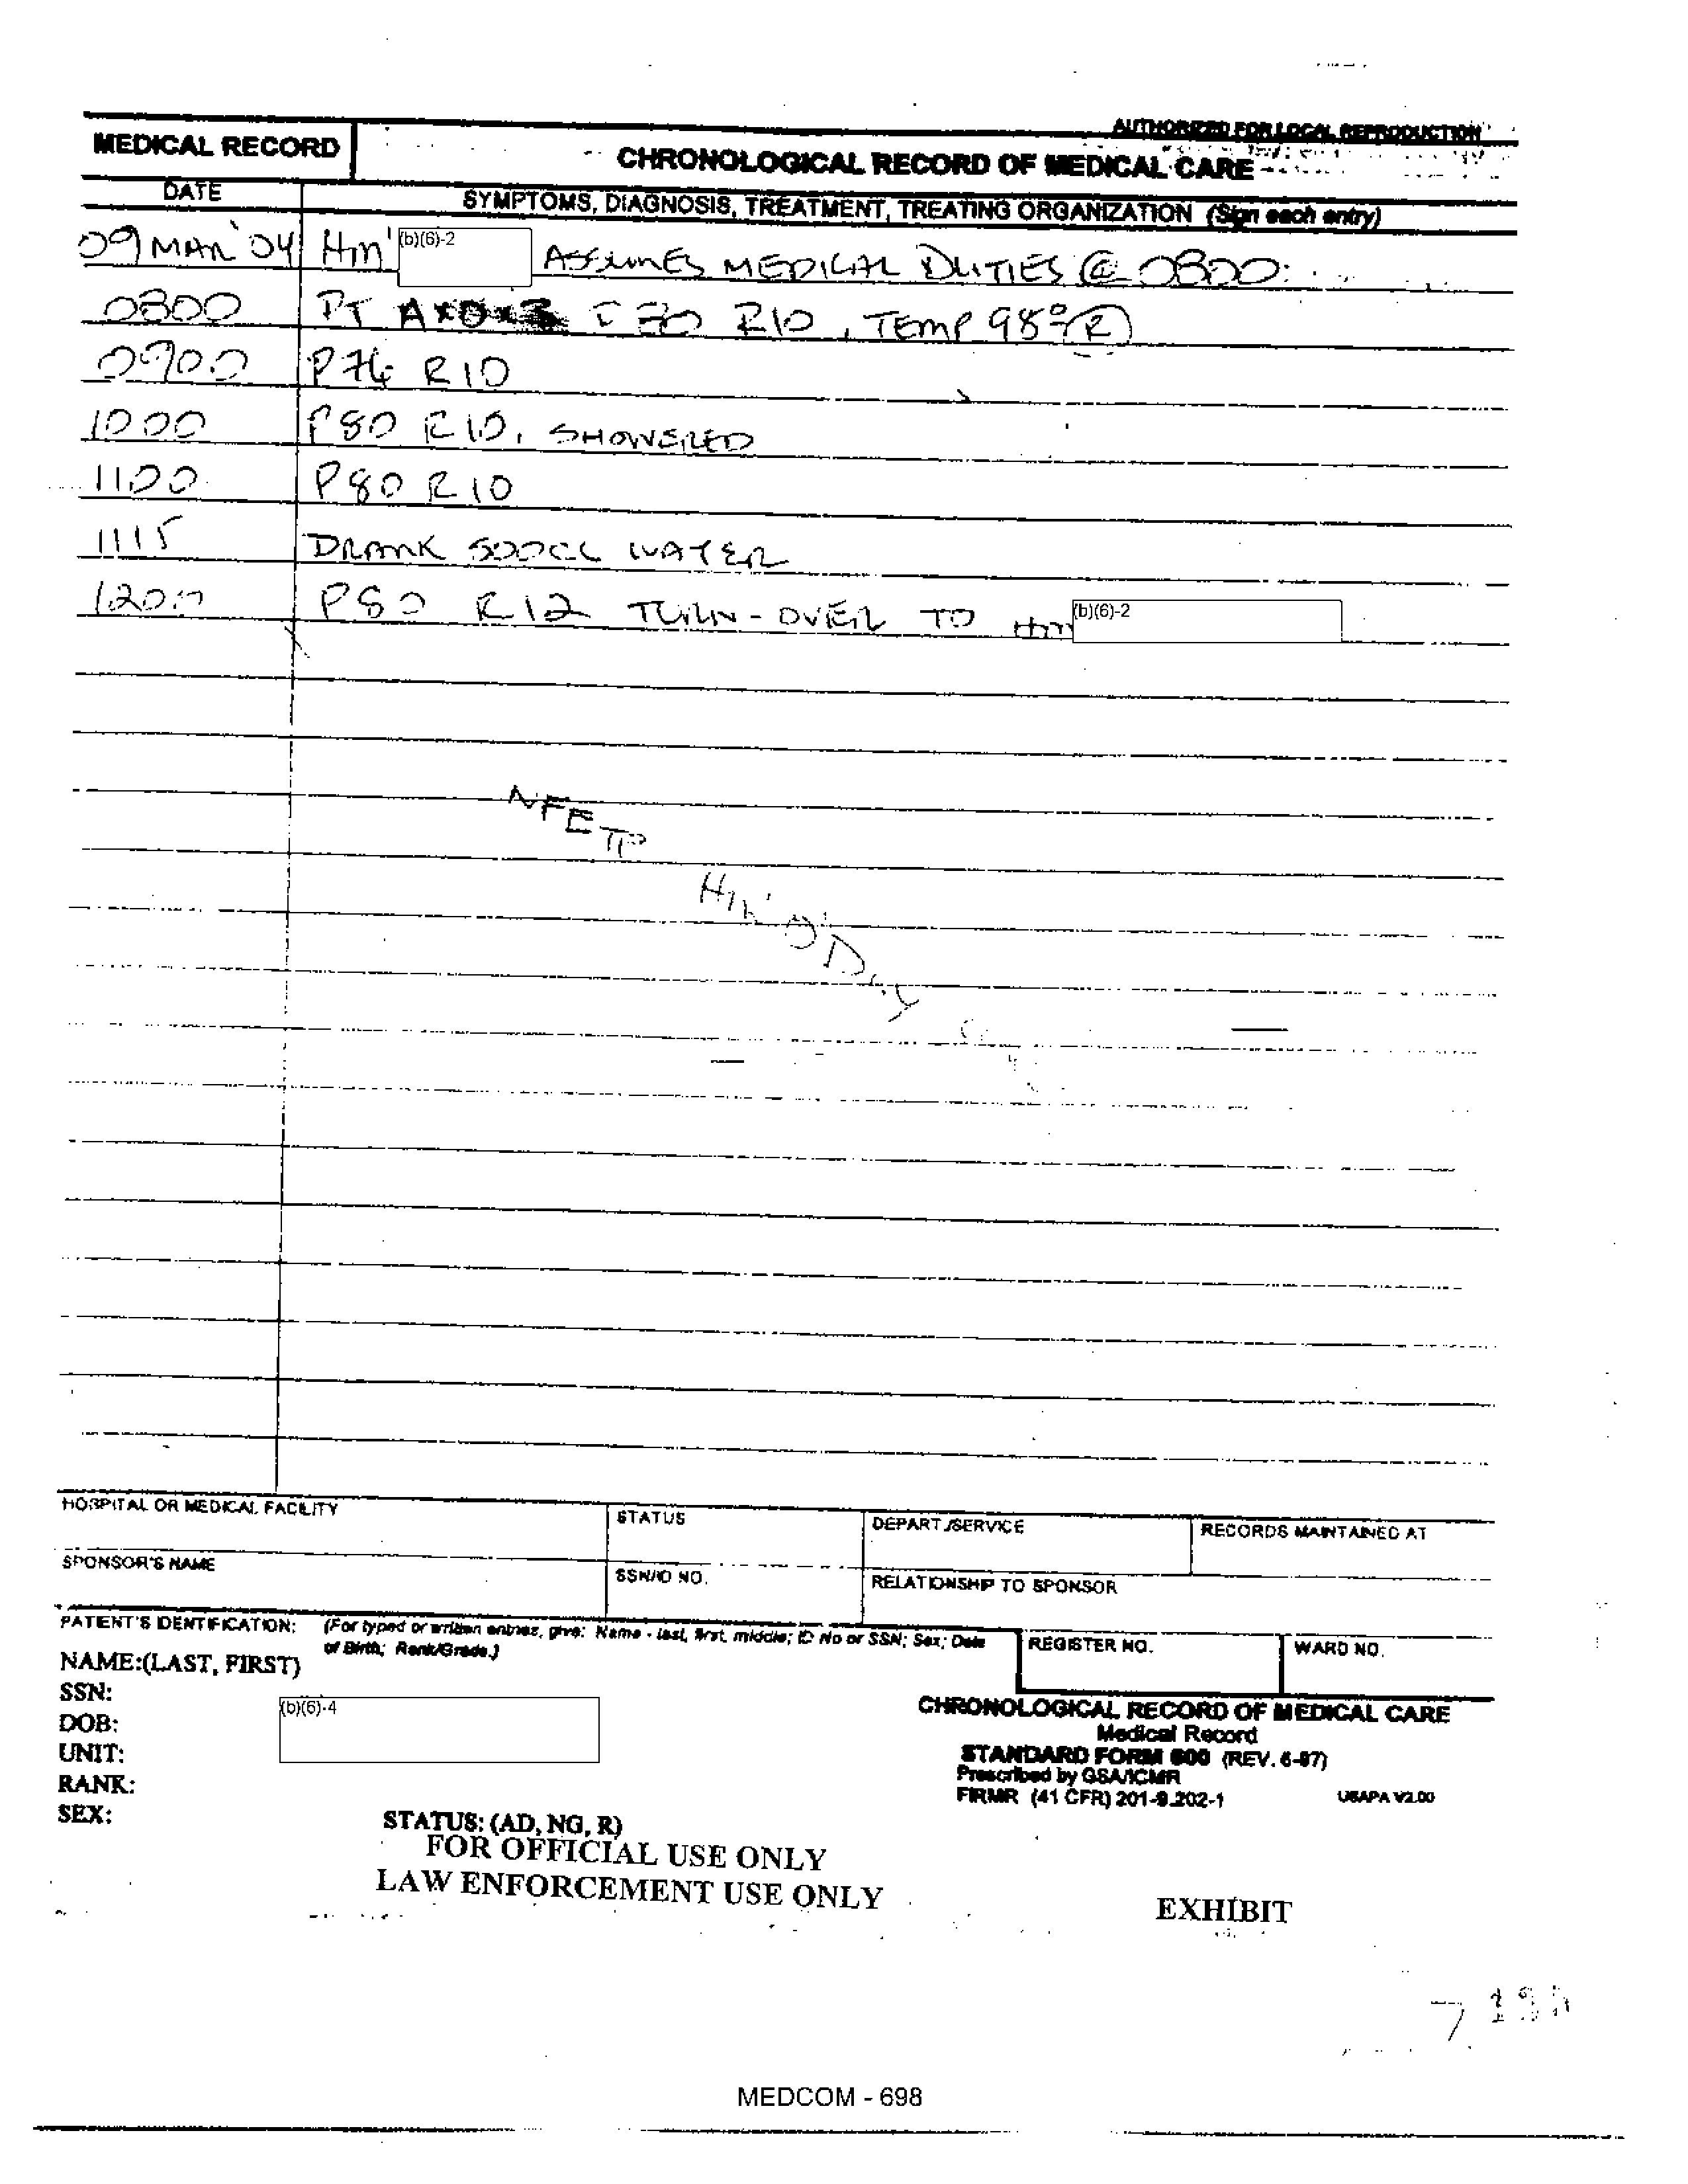 AUTHORIZED FOR LOCAL REPRODUCTION
MEDICAL RECORD
CHRONOLOGICAL RECORD OF MEDICAL CARE
DATE
SYMPTOMS, DIAGNOSIS, TREATMENT, TREATING ORGANIZATION (Sign each entry)
09 MAR '04 HM (b)(6)-2 ASSUMES MEDICAL DUTIES @ 0800.
0800 PT R10, TEMP 98 (R)
0900 P76 R10
1000 P80 R10, SHOWERED
1100 P80 R10
1115 DRANK 500CC WATER
1200 P80 R12 TURN-OVER TO HM (b)(6)-2
NFE
HOSPITAL OR MEDICAL FACILITY
STATUS
DEPART./SERVICE
RECORDS MAINTAINED AT
SPONSOR'S NAME
SSN/ID NO.
RELATIONSHIP TO SPONSOR
PATIENT'S IDENTIFICATION: (For typed or written entries, give: Name - last, first, middle; ID No or SSN; Sex; Date
of Birth; Rank/Grade.)
REGISTER NO.
WARD NO.
NAME:(LAST, FIRST)
SSN:
DOB:
UNIT:
RANK:
SEX:
(b)(6)-4
CHRONOLOGICAL RECORD OF MEDICAL CARE
Medical Record
STANDARD FORM 600 (REV. 6-97)
Prescribed by GSA/ICMR
FIRMR (41 CFR) 201-9.202-1
USAPA V2.00
STATUS: (AD, NG, R)
FOR OFFICIAL USE ONLY
LAW ENFORCEMENT USE ONLY
EXHIBIT
MEDCOM - 698